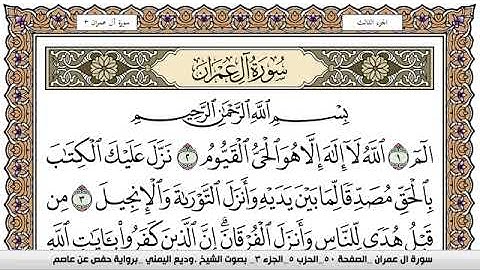 الجزء الثالث
سورة آل عمران ٣
سُورَةُ آلِ عِمْرَان
بِسْمِ اللَّهِ الرَّحْمَٰنِ الرَّحِيمِ
الٓمٓ ١ اللَّهُ لَا إِلَٰهَ إِلَّا هُوَ الْحَيُّ الْقَيُّومُ ٢ نَزَّلَ عَلَيْكَ الْكِتَابَ
بِالْحَقِّ مُصَدِّقًا لِّمَا بَيْنَ يَدَيْهِ وَأَنزَلَ التَّوْرَىٰةَ وَالْإِنجِيلَ ٣ مِن
قَبْلُ هُدًى لِّلنَّاسِ وَأَنزَلَ الْفُرْقَانَ ۗ إِنَّ الَّذِينَ كَفَرُوا بِـَٔايَـٰتِ اللَّهِ
سورة آل عمران _الصفحة ٥٠ _الحزب ٥ _الجزء ٣_ بصوت الشيخ _وديع اليمني _برواية حفص عن عاصم